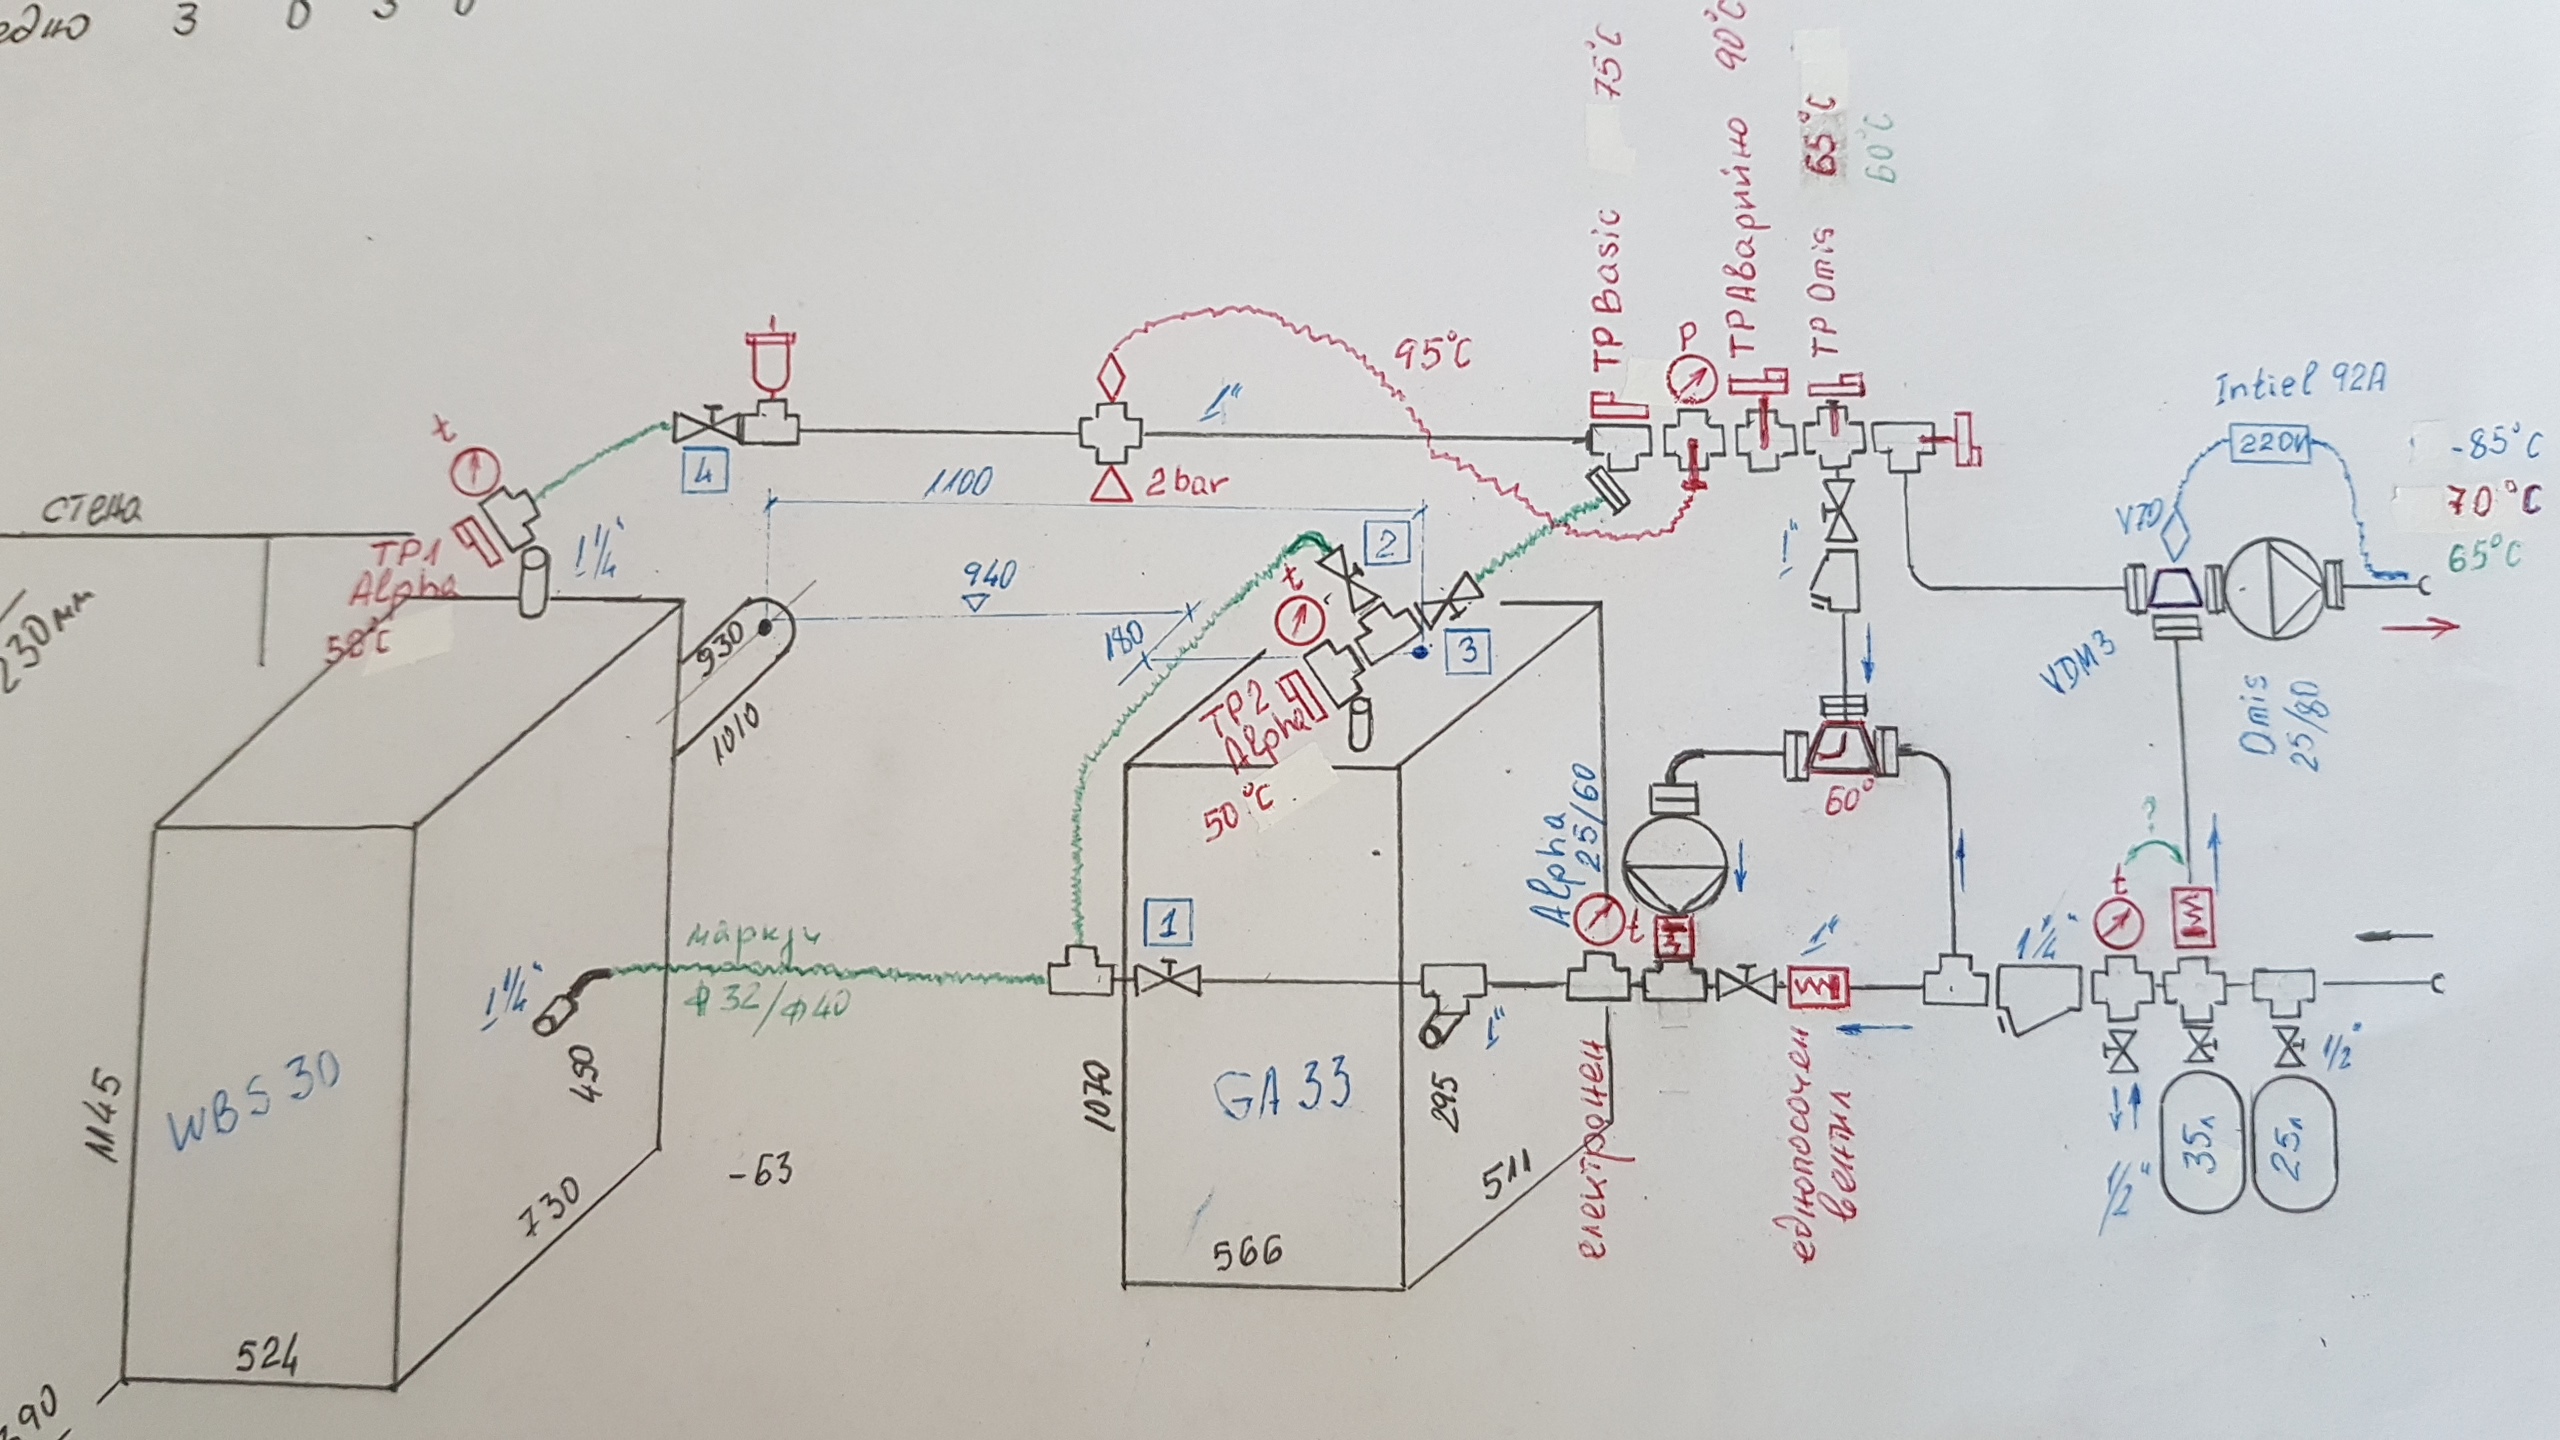 3 0 3 0
стена
t
TP1
Alpha
50°C
1 1/4"
4
1100
940
180
2 bar
1"
95°C
TP Basic 75°C
P
TP Аварийно 90°C
TP Omis 65°C
60°C
Intiel 92A
220V
-85°C
70°C
65°C
V70
VDM3
Omis
25/80
2
t
3
TP2
Alpha
50°C
930
1010
1"
60°
Alpha
25/60
t
1"
1 1/4"
t
?
1
маркуч
ф32/ф40
1 1/4"
490
1145
WBS 30
730
524
-63
1070
GA 33
295
1"
566
511
електронен
еднопосочен
вентил
1/2"
35л
25л
1/2"
230мм